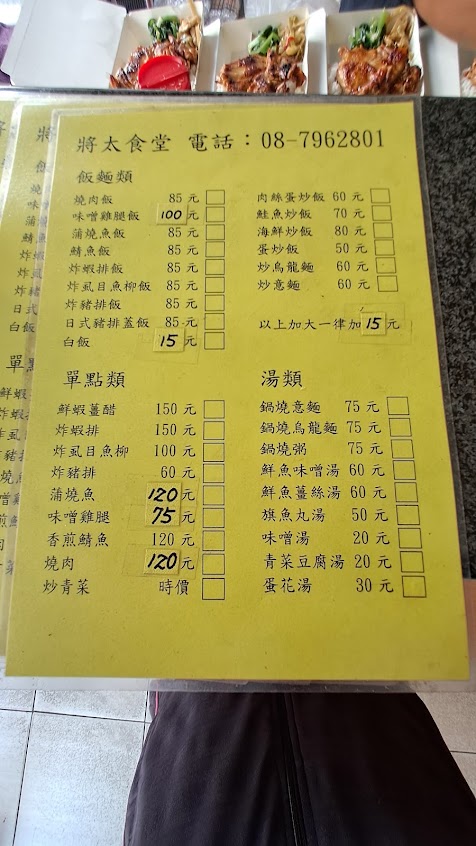 將太食堂 電話：08-7962801
飯麵類
燒肉飯 85元
味噌雞腿飯 100元
蒲燒魚飯 85元
鯖魚飯 85元
炸蝦排飯 85元
炸虱目魚柳飯 85元
炸豬排飯 85元
日式豬排蓋飯 85元
白飯 15元
肉絲蛋炒飯 60元
鮭魚炒飯 70元
海鮮炒飯 80元
蛋炒飯 50元
炒烏龍麵 60元
炒意麵 60元
以上加大一律加15元
單點類
鮮蝦薑醋 150元
炸蝦排 150元
炸虱目魚柳 100元
炸豬排 60元
蒲燒魚 120元
味噌雞腿 75元
香煎鯖魚 120元
燒肉 120元
炒青菜 時價
湯類
鍋燒意麵 75元
鍋燒烏龍麵 75元
鍋燒粥 75元
鮮魚味噌湯 60元
鮮魚薑絲湯 60元
旗魚丸湯 50元
味噌湯 20元
青菜豆腐湯 20元
蛋花湯 30元